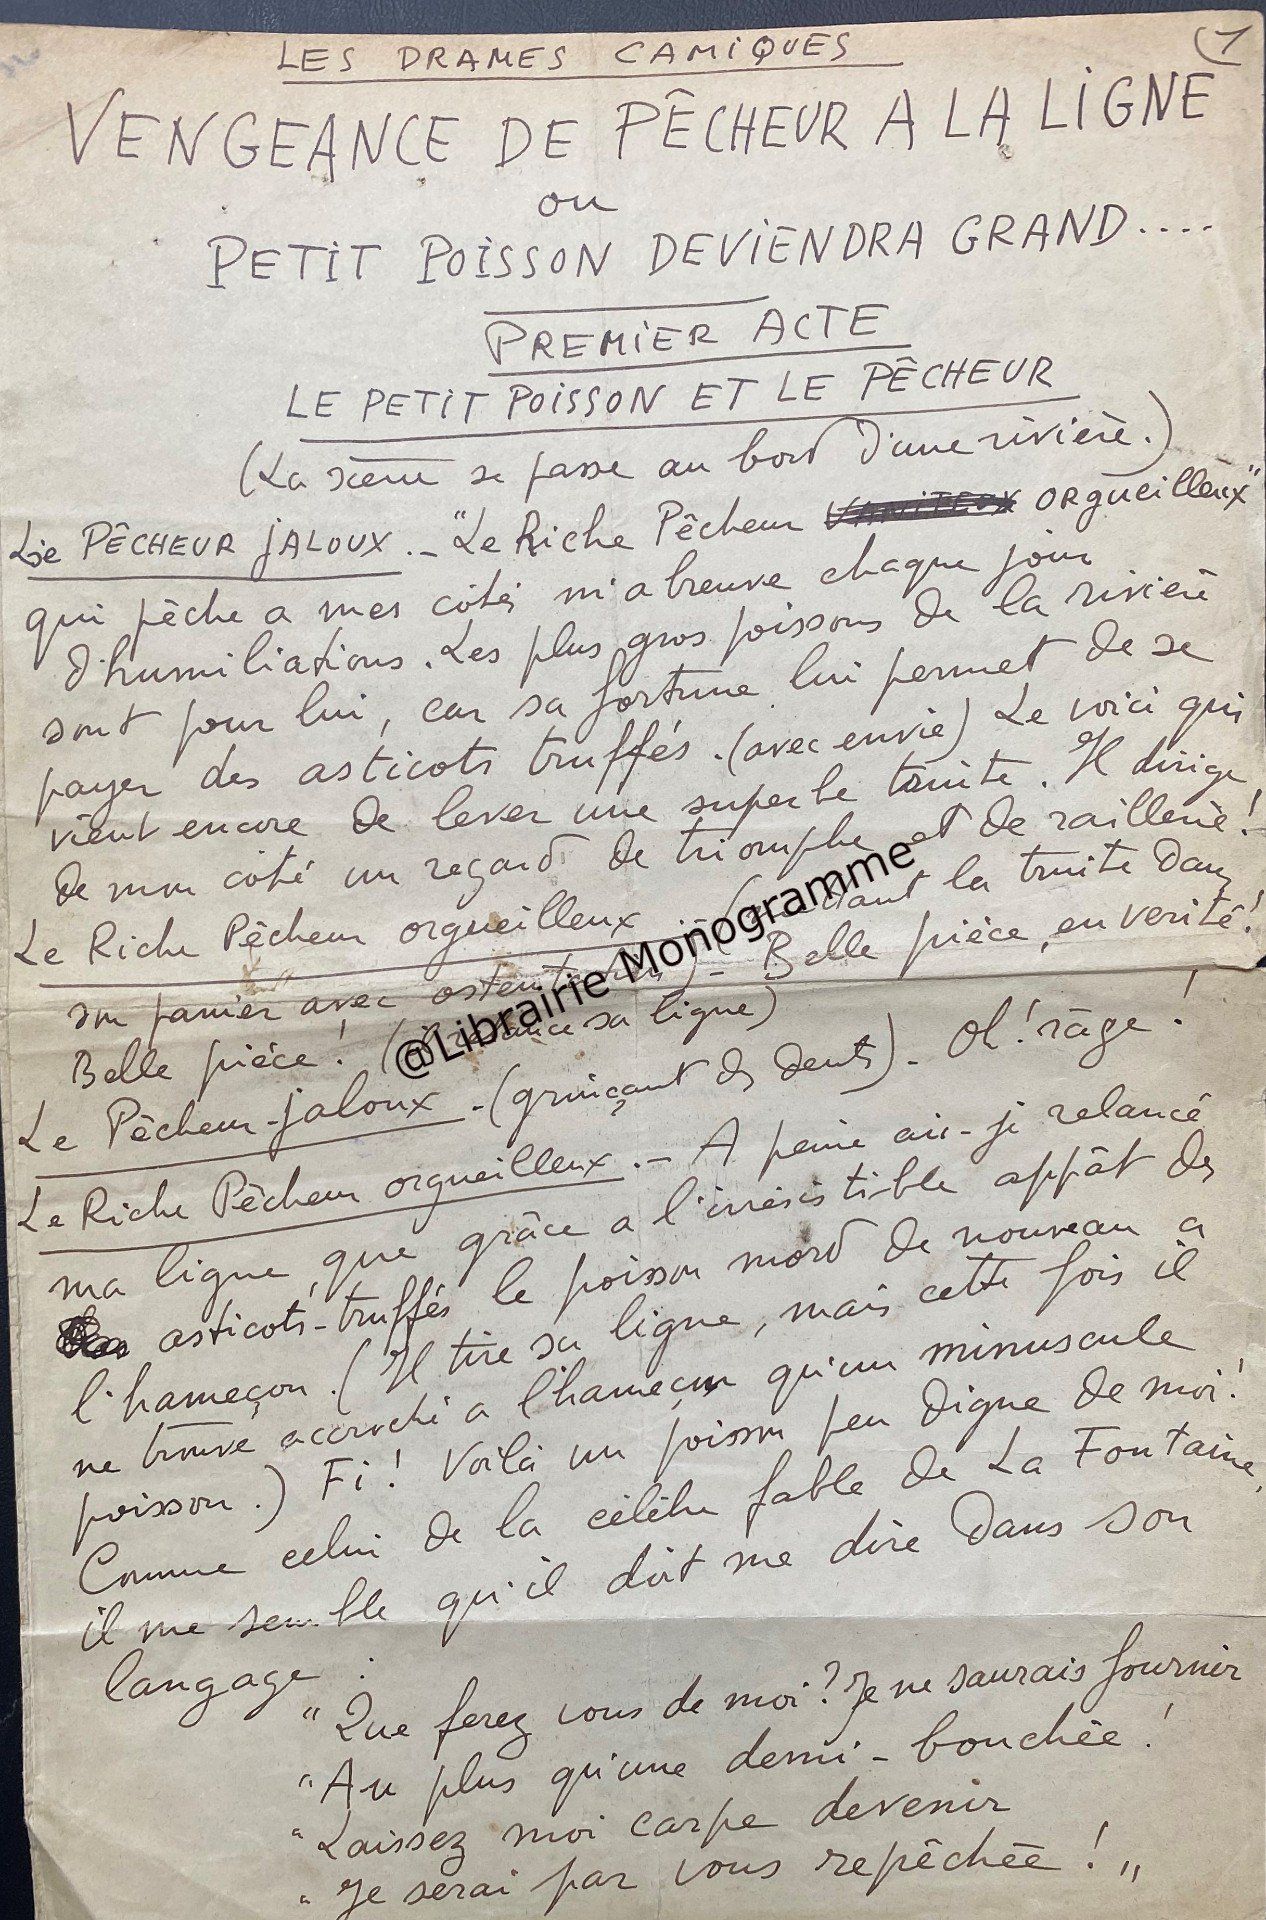 1
LES DRAMES CAMIQUES
VENGEANCE DE PÊCHEUR A LA LIGNE
ou
PETIT POISSON DEVIENDRA GRAND....
PREMIER ACTE
LE PETIT POISSON ET LE PÊCHEUR
(La scène se passe au bord d'une rivière.)
Le PÊCHEUR JALOUX._ "Le Riche Pêcheur VANITEUX ORgueilleux"
qui pêche a mes côtés m'abreuve chaque jour
d'humiliations. Les plus gros poissons de la rivière
sont pour lui, car sa fortune lui permet de se
payer des asticots truffés. (avec envie) Le voici qui
vient encore de lever une superbe truite. Il dirige
de mon côté un regard de triomphe et de raillerie!
Le Riche Pêcheur orgueilleux (mettant la truite dans
son panier avec ostentation) - Belle pièce, en vérité!
Belle pièce! (il relance sa ligne)
@Librairie Monogramme
Le Pêcheur-jaloux -(grinçant des dents)- Oh! rage!
Le Riche Pêcheur orgueilleux._ A peine ai-je relancé
ma ligne, que grâce a l'irrésistible appât des
asticots-truffés le poisson mord de nouveau a
l'hameçon. (Il tire sa ligne, mais cette fois il
ne trouve accroché a l'hameçon qu'un minuscule
poisson.) Fi! Voilà un poisson peu digne de moi!
Comme celui de la célèbre fable de La Fontaine,
il me semble qu'il doit me dire dans son
langage :
"Que ferez vous de moi? Je ne saurais fournir
"Au plus qu'une demi-bouchée!
"Laissez moi carpe devenir
"Je serai par vous repêchée!"